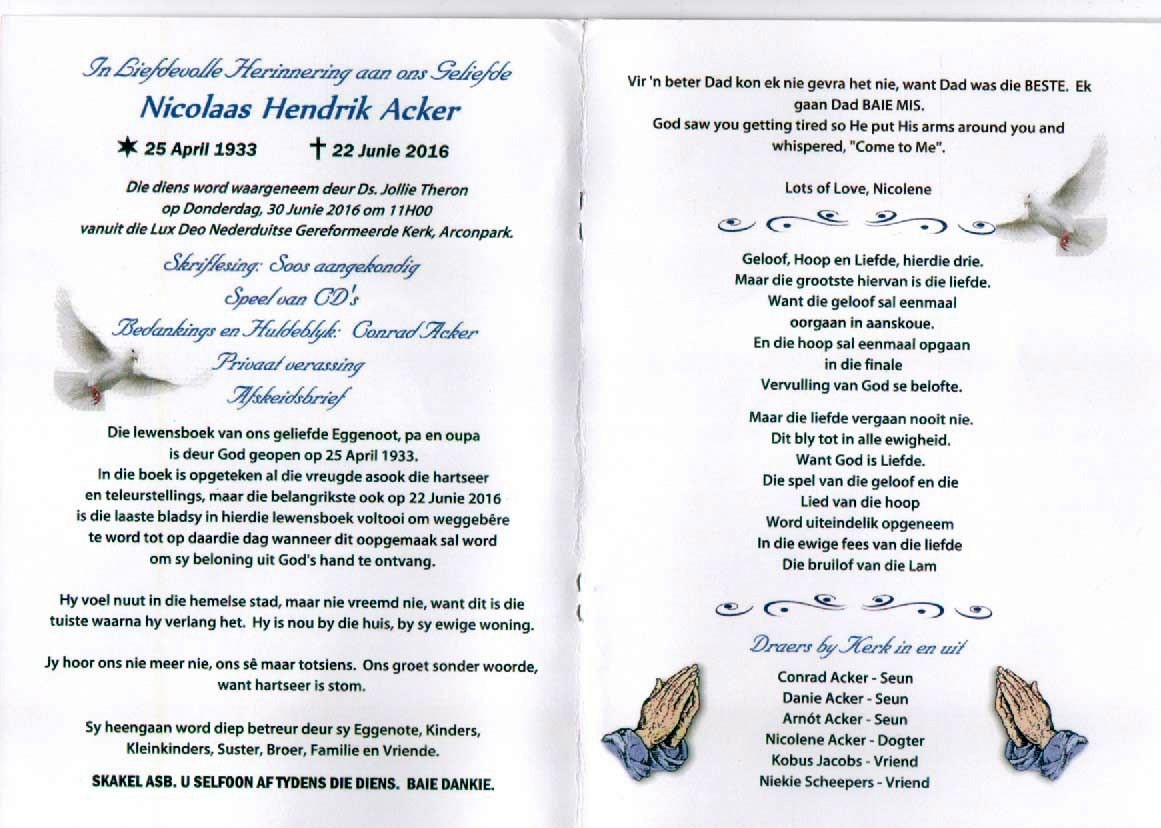 In Liefdevolle Herinnering aan ons Geliefde
Nicolaas Hendrik Acker
25 April 1933 22 Junie 2016
Die diens word waargeneem deur Ds. Jollie Theron
op Donderdag, 30 Junie 2016 om 11H00
vanuit die Lux Deo Nederduitse Gereformeerde Kerk, Arconpark.
Skriflesing: Soos aangekondig
Speel van CD's
Bedankings en Huldeblyk: Conrad Acker
Privaat verassing
Afskeidsbrief
Die lewensboek van ons geliefde Eggenoot, pa en oupa
is deur God geopen op 25 April 1933.
In die boek is opgeteken al die vreugde asook die hartseer
en teleurstellings, maar die belangrikste ook op 22 Junie 2016
is die laaste bladsy in hierdie lewensboek voltooi om weggebêre
te word tot op daardie dag wanneer dit oopgemaak sal word
om sy beloning uit God's hand te ontvang.
Hy voel nuut in die hemelse stad, maar nie vreemd nie, want dit is die
tuiste waarna hy verlang het. Hy is nou by die huis, by sy ewige woning.
Jy hoor ons nie meer nie, ons sê maar totsiens. Ons groet sonder woorde,
want hartseer is stom.
Sy heengaan word diep betreur deur sy Eggenote, Kinders,
Kleinkinders, Suster, Broer, Familie en Vriende.
SKAKEL ASB. U SELFOON AF TYDENS DIE DIENS. BAIE DANKIE.
Vir 'n beter Dad kon ek nie gevra het nie, want Dad was die BESTE. Ek
gaan Dad BAIE MIS.
God saw you getting tired so He put His arms around you and
whispered, "Come to Me".
Lots of Love, Nicolene
Geloof, Hoop en Liefde, hierdie drie.
Maar die grootste hiervan is die liefde.
Want die geloof sal eenmaal
oorgaan in aanskoue.
En die hoop sal eenmaal opgaan
in die finale
Vervulling van God se belofte.
Maar die liefde vergaan nooit nie.
Dit bly tot in alle ewigheid.
Want God is Liefde.
Die spel van die geloof en die
Lied van die hoop
Word uiteindelik opgeneem
In die ewige fees van die liefde
Die bruilof van die Lam
Draers by Kerk in en uit
Conrad Acker - Seun
Danie Acker - Seun
Arnót Acker - Seun
Nicolene Acker - Dogter
Kobus Jacobs - Vriend
Niekie Scheepers - Vriend